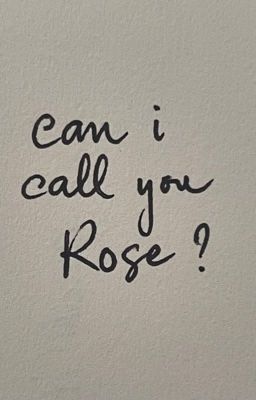 can i
call you
Rose?